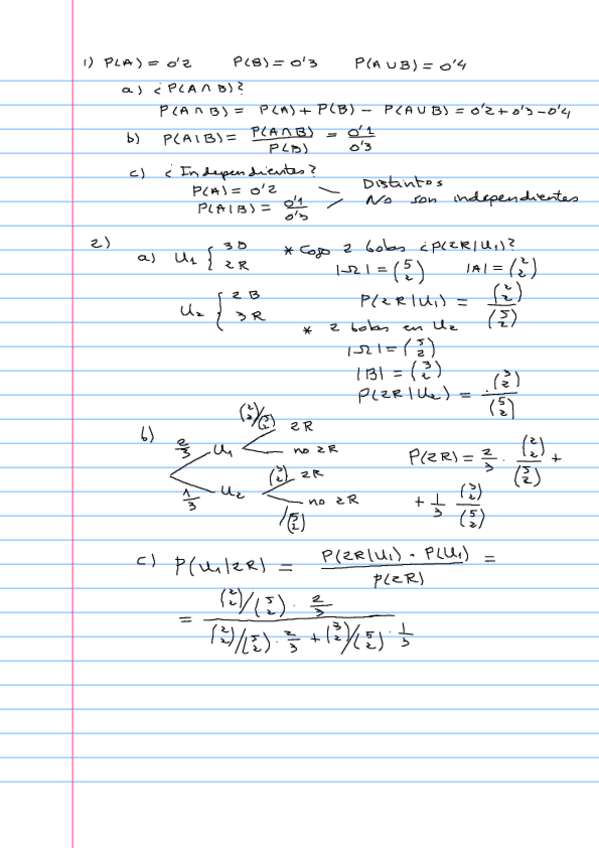 1) P(A) = 0'2 P(B) = 0'3 P(A ∪ B) = 0'4
a) ¿P(A ∩ B)?
P(A ∩ B) = P(A) + P(B) - P(A ∪ B) = 0'2 + 0'3 - 0'4
b) P(A|B) = P(A ∩ B) / P(B) = 0'1 / 0'3
c) ¿Independientes?
P(A) = 0'2 Distintos
P(A|B) = 0'1 / 0'3 No son independientes
2)
a) U1 { 3B 2R * Cojo 2 bolas ¿P(2R|U1)?
|Ω| = (5 2) |A| = (2 2)
U2 { 2B 3R P(2R|U1) = (2 2) / (5 2)
* 2 bolas en U2
|Ω| = (5 2)
|B| = (3 2)
P(2R|U2) = (3 2) / (5 2)
b) 2/3 U1 (2 2)/(5 2) 2R
no 2R
1/3 U2 (3 2)/(5 2) 2R
no 2R
P(2R) = 2/3 · (2 2) / (5 2) +
+ 1/3 (3 2) / (5 2)
c) P(U1|2R) = P(2R|U1) · P(U1) / P(2R) =
= (2 2)/(5 2) · 2/3 / (2 2)/(5 2) · 2/3 + (3 2)/(5 2) · 1/3